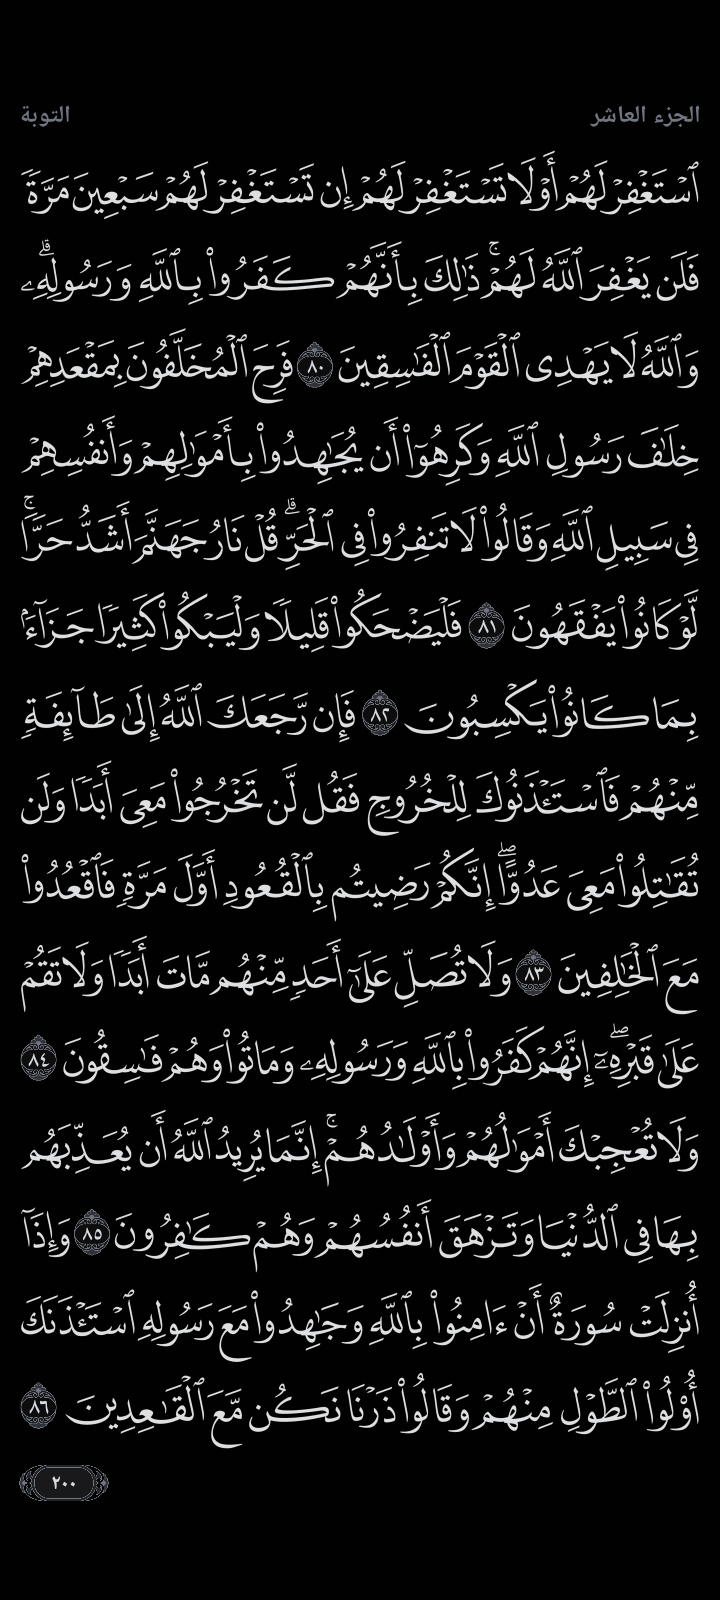 الجزء العاشر
التوبة
ٱسۡتَغۡفِرۡ لَهُمۡ أَوۡ لَا تَسۡتَغۡفِرۡ لَهُمۡ إِن تَسۡتَغۡفِرۡ لَهُمۡ سَبۡعِينَ مَرَّةٗ
فَلَن يَغۡفِرَ ٱللَّهُ لَهُمۡۚ ذَٰلِكَ بِأَنَّهُمۡ كَفَرُواْ بِٱللَّهِ وَرَسُولِهِۦۗ
وَٱللَّهُ لَا يَهۡدِي ٱلۡقَوۡمَ ٱلۡفَٰسِقِينَ ٨٠ فَرِحَ ٱلۡمُخَلَّفُونَ بِمَقۡعَدِهِمۡ
خِلَٰفَ رَسُولِ ٱللَّهِ وَكَرِهُوٓاْ أَن يُجَٰهِدُواْ بِأَمۡوَٰلِهِمۡ وَأَنفُسِهِمۡ
فِي سَبِيلِ ٱللَّهِ وَقَالُواْ لَا تَنفِرُواْ فِي ٱلۡحَرِّۗ قُلۡ نَارُ جَهَنَّمَ أَشَدُّ حَرّٗاۚ
لَّوۡ كَانُواْ يَفۡقَهُونَ ٨١ فَلۡيَضۡحَكُواْ قَلِيلٗا وَلۡيَبۡكُواْ كَثِيرٗا جَزَآءَۢ
بِمَا كَانُواْ يَكۡسِبُونَ ٨٢ فَإِن رَّجَعَكَ ٱللَّهُ إِلَىٰ طَآئِفَةٖ
مِّنۡهُمۡ فَٱسۡتَـٔۡذَنُوكَ لِلۡخُرُوجِ فَقُل لَّن تَخۡرُجُواْ مَعِيَ أَبَدٗا وَلَن
تُقَٰتِلُواْ مَعِيَ عَدُوًّاۖ إِنَّكُمۡ رَضِيتُم بِٱلۡقُعُودِ أَوَّلَ مَرَّةٖ فَٱقۡعُدُواْ
مَعَ ٱلۡخَٰلِفِينَ ٨٣ وَلَا تُصَلِّ عَلَىٰٓ أَحَدٖ مِّنۡهُم مَّاتَ أَبَدٗا وَلَا تَقُمۡ
عَلَىٰ قَبۡرِهِۦٓۖ إِنَّهُمۡ كَفَرُواْ بِٱللَّهِ وَرَسُولِهِۦ وَمَاتُواْ وَهُمۡ فَٰسِقُونَ ٨٤
وَلَا تُعۡجِبۡكَ أَمۡوَٰلُهُمۡ وَأَوۡلَٰدُهُمۡۚ إِنَّمَا يُرِيدُ ٱللَّهُ أَن يُعَذِّبَهُم
بِهَا فِي ٱلدُّنۡيَا وَتَزۡهَقَ أَنفُسُهُمۡ وَهُمۡ كَٰفِرُونَ ٨٥ وَإِذَآ
أُنزِلَتۡ سُورَةٌ أَنۡ ءَامِنُواْ بِٱللَّهِ وَجَٰهِدُواْ مَعَ رَسُولِهِ ٱسۡتَـٔۡذَنَكَ
أُوْلُواْ ٱلطَّوۡلِ مِنۡهُمۡ وَقَالُواْ ذَرۡنَا نَكُن مَّعَ ٱلۡقَٰعِدِينَ ٨٦
٢٠٠